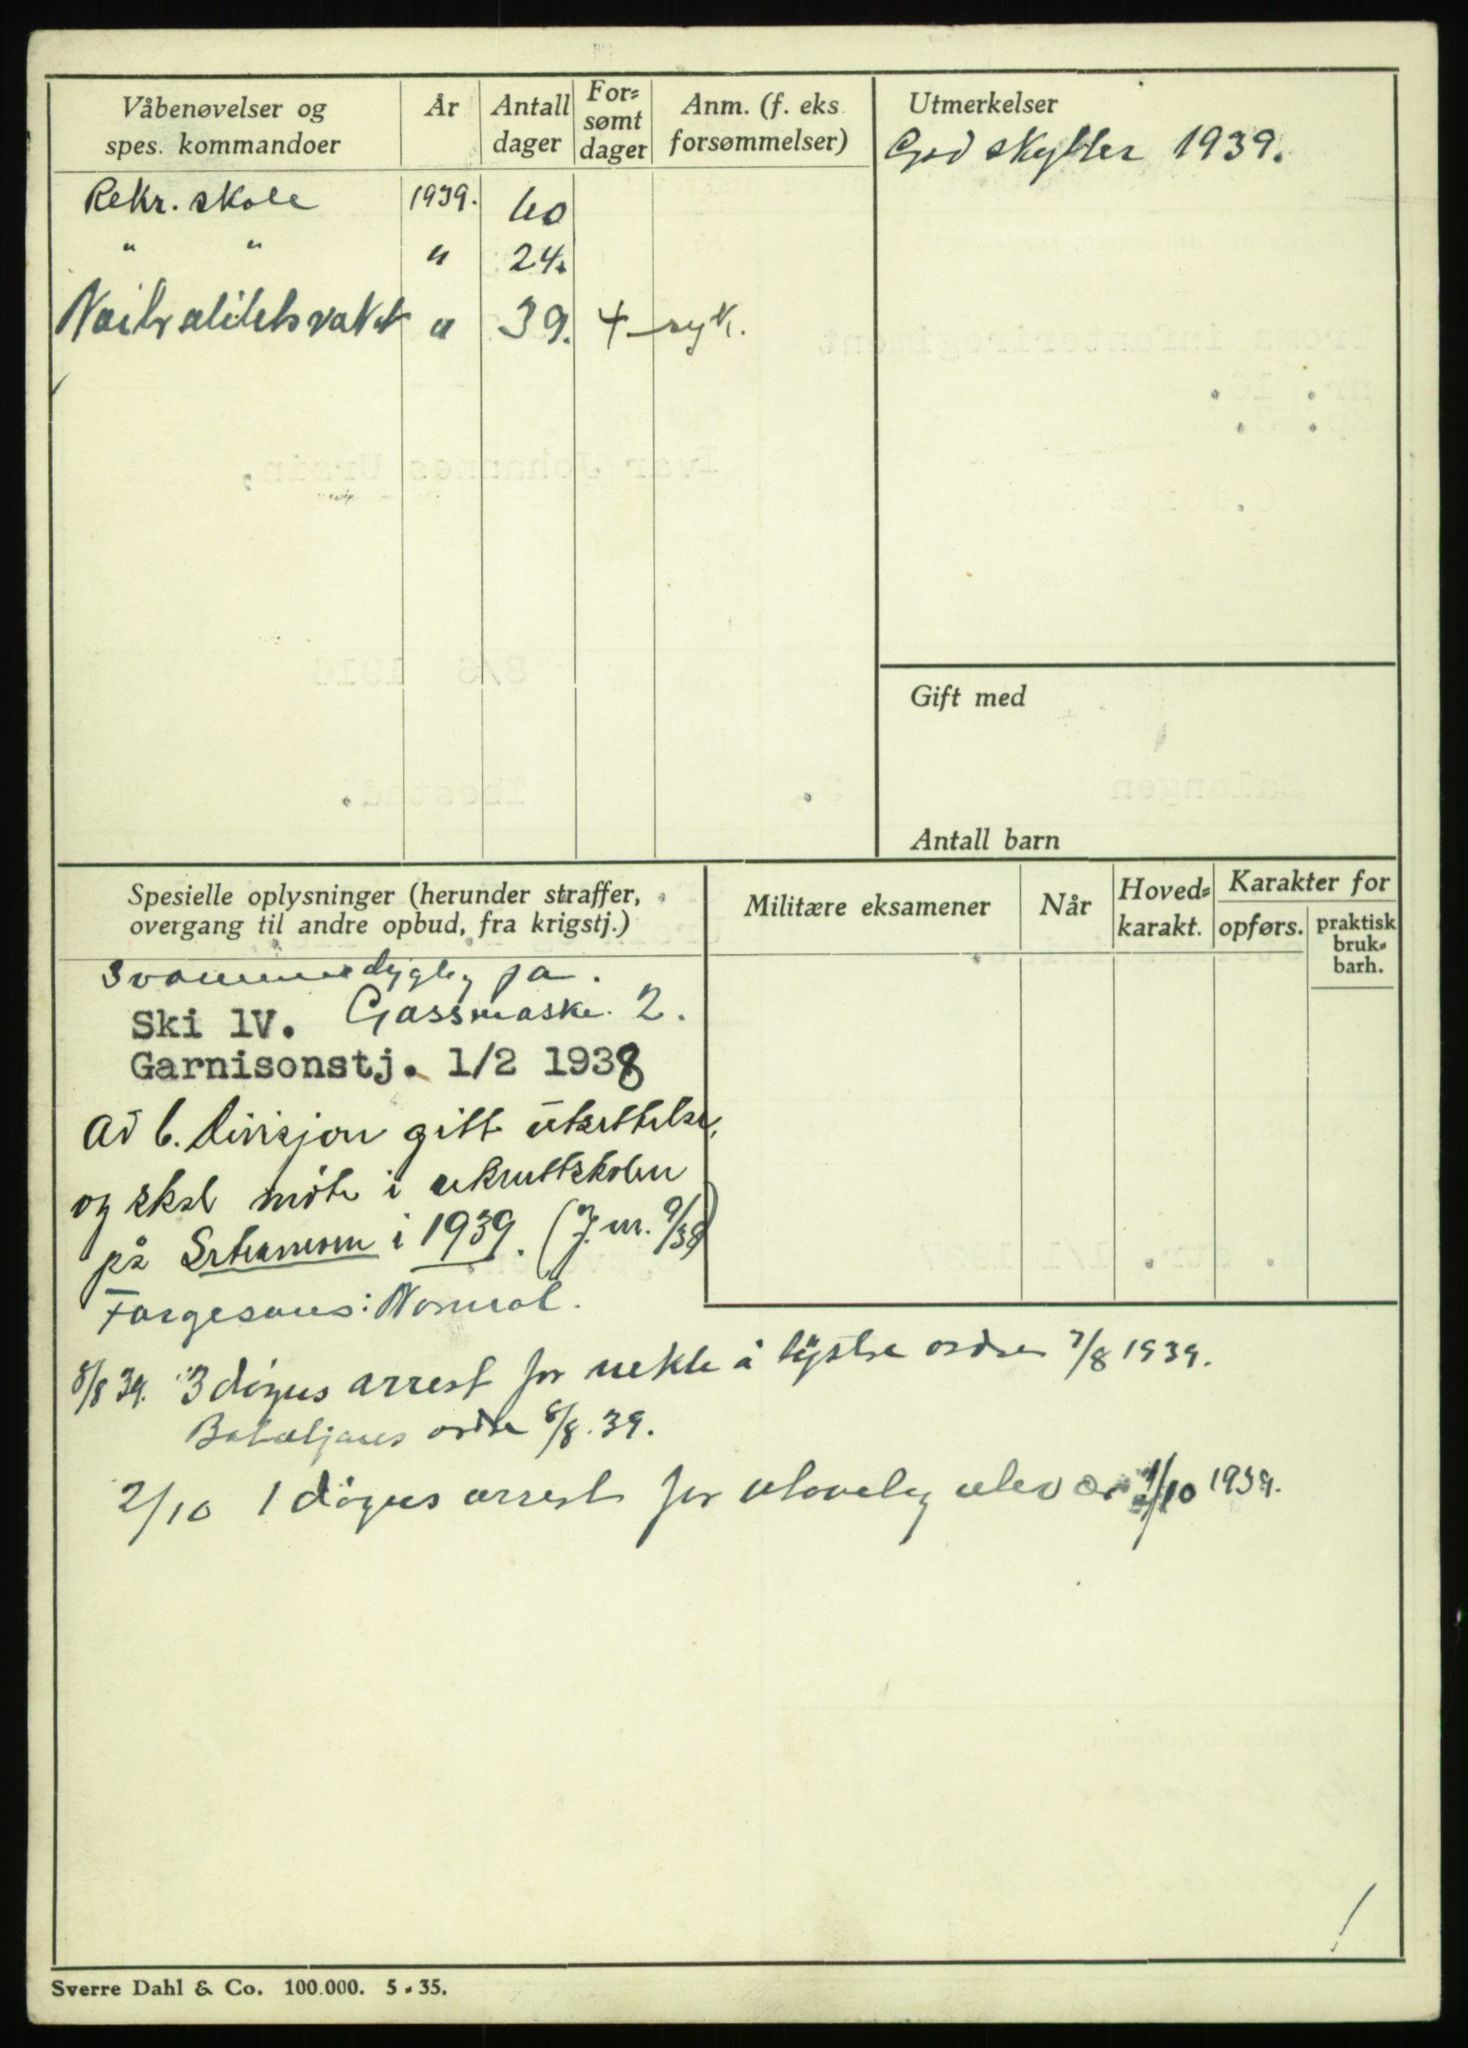 Våbenøvelser og
spes. kommandoer
År
Antall
dager
For=
sømt
dager
Anm. (f. eks
forsømmelser)
Utmerkelser
God skytter 1939.
Rekr. skole 1939. 60
" " " 24.
Nøitralitetsvakt " 39. 4 syk.
Gift med
Antall barn
Spesielle oplysninger (herunder straffer,
overgang til andre opbud, fra krigstj.)
Militære eksamener
Når
Hoved=
karakt.
Karakter for
opførs.
praktisk
bruk=
barh.
Svømmedygtig ja.
Ski lV. Gassmaske 2.
Garnisonstj. 1/2 1938
Av 6. divisjon gitt utsettelse,
og skal møte i rekruttskolen
på i 1939. (J.nr. 9/38)
Fargesans: Normal.
8/8 39. 3 døgns arrest for nekte å lystre ordre 7/8 1939.
Bataljons ordre 8/8. 39.
2/10 1 døgns arrest for ulovlig 1/10 1939.
Sverre Dahl & Co. 100.000. 5 - 35.